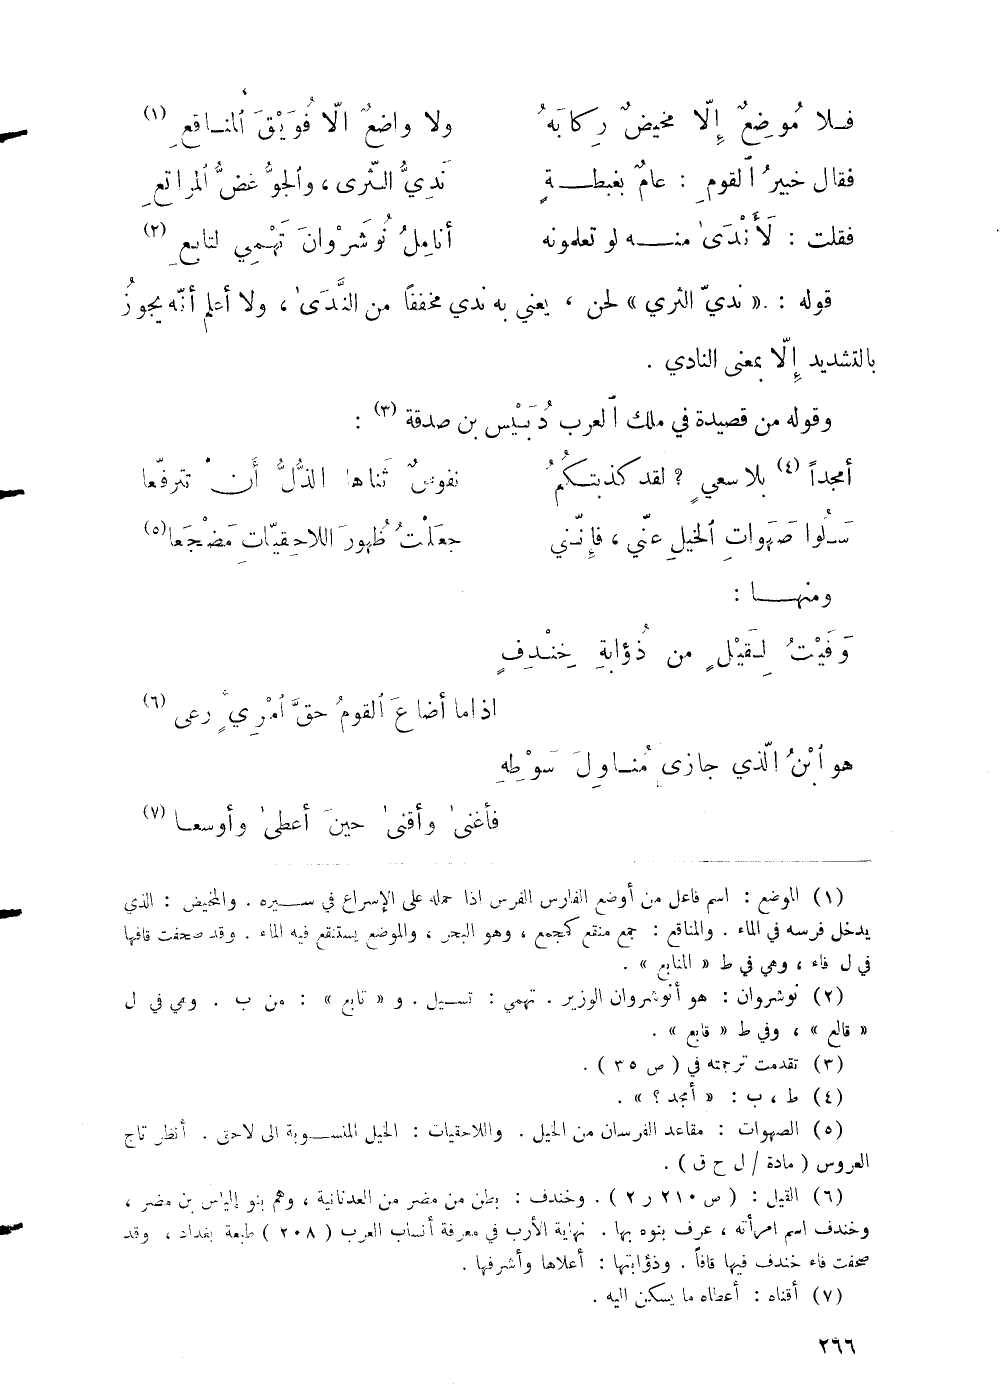 فلا مُوضِعٌ إِلّا مخيضٌ رِكابَهُ ولا واضعٌ الّا فُوَيْقَ ٱلمناقعِ (١)
فقال خبيرُ ٱلقومِ : عامٌ بغبطةٍ نَديُّ الثّرى ، والجوُّ غضُّ ٱلمراتعِ
فقلت : لَأَنْدَىٰ منه لو تعلمونه أناملُ نُوشَرْوانَ تَهْمِي لتابعِ (٢)
قوله : « نديّ الثري » لحن ، يعني به ندي مخففاً من النَّدَىٰ ، ولا أعلم أنّه يجوزُ
بالتشديد إِلّا بمعنى النادي .
وقوله من قصيدة في ملك ٱلعرب دُبَيْس بن صدقة (٣) :
أمجداً (٤) بلا سعيٍ ? لقد كذبتكمُ نفوسٌ ثناها الذلُّ أَن تترفّعا
سَلُوا صَهَواتِ ٱلخيلِ عنّي ، فإِنّني جعلْتُ ظُهورَ اللاحقيّاتِ مَضْجَعا (٥)
ومنها :
وَفَيْتُ لِقَيْلٍ من ذُؤابةِ خِنْدِفٍ
اذا ما أضاعَ ٱلقومُ حقَّ ٱمْرِيءٍ رعى (٦)
هو ٱبْنُ الّذي جازى مُناوِلَ سَوْطِهِ
فأغنىٰ وأقنىٰ حينَ أعطىٰ وأوسعا (٧)
(١) الموضع : اسم فاعل من أوضع الفارس الفرس اذا حمله على الإسراع في سيره . والمخيض : الذي
يدخل فرسه في الماء . والمناقع : جمع منقع كمجمع ، وهو البحر ، والموضع يستنقع فيه الماء . وقد صحفت قافها
في ل فاء ، وهي في ط « المنابع » .
(٢) نوشروان : هو أنوشروان الوزير . تهمي : تسيل . و « تابع » : من ب . وهي في ل
« قالع » ، وفي ط « قابع » .
(٣) تقدمت ترجمته في ( ص ٣٥ ) .
(٤) ط ، ب : « أمجد ؟ » .
(٥) الصهوات : مقاعد الفرسان من الخيل . واللاحقيات : الخيل المنسوبة الى لاحق . أنظر تاج
العروس ( مادة / ل ح ق ) .
(٦) القيل : ( ص ٢١٠ ر ٢ ) . وخندف : بطن من مضر من العدنانية ، وهم بنو إلياس بن مضر ،
وخندف اسم امرأته ، عرف بنوه بها . نهاية الأرب في معرفة أنساب العرب ( ٢٠٨ ) طبعة بغداد ، وقد
صحفت فاء خندف فيها قافاً . وذؤابتها : أعلاها وأشرفها .
(٧) أقناه : أعطاه ما يسكن اليه .
٢٦٦